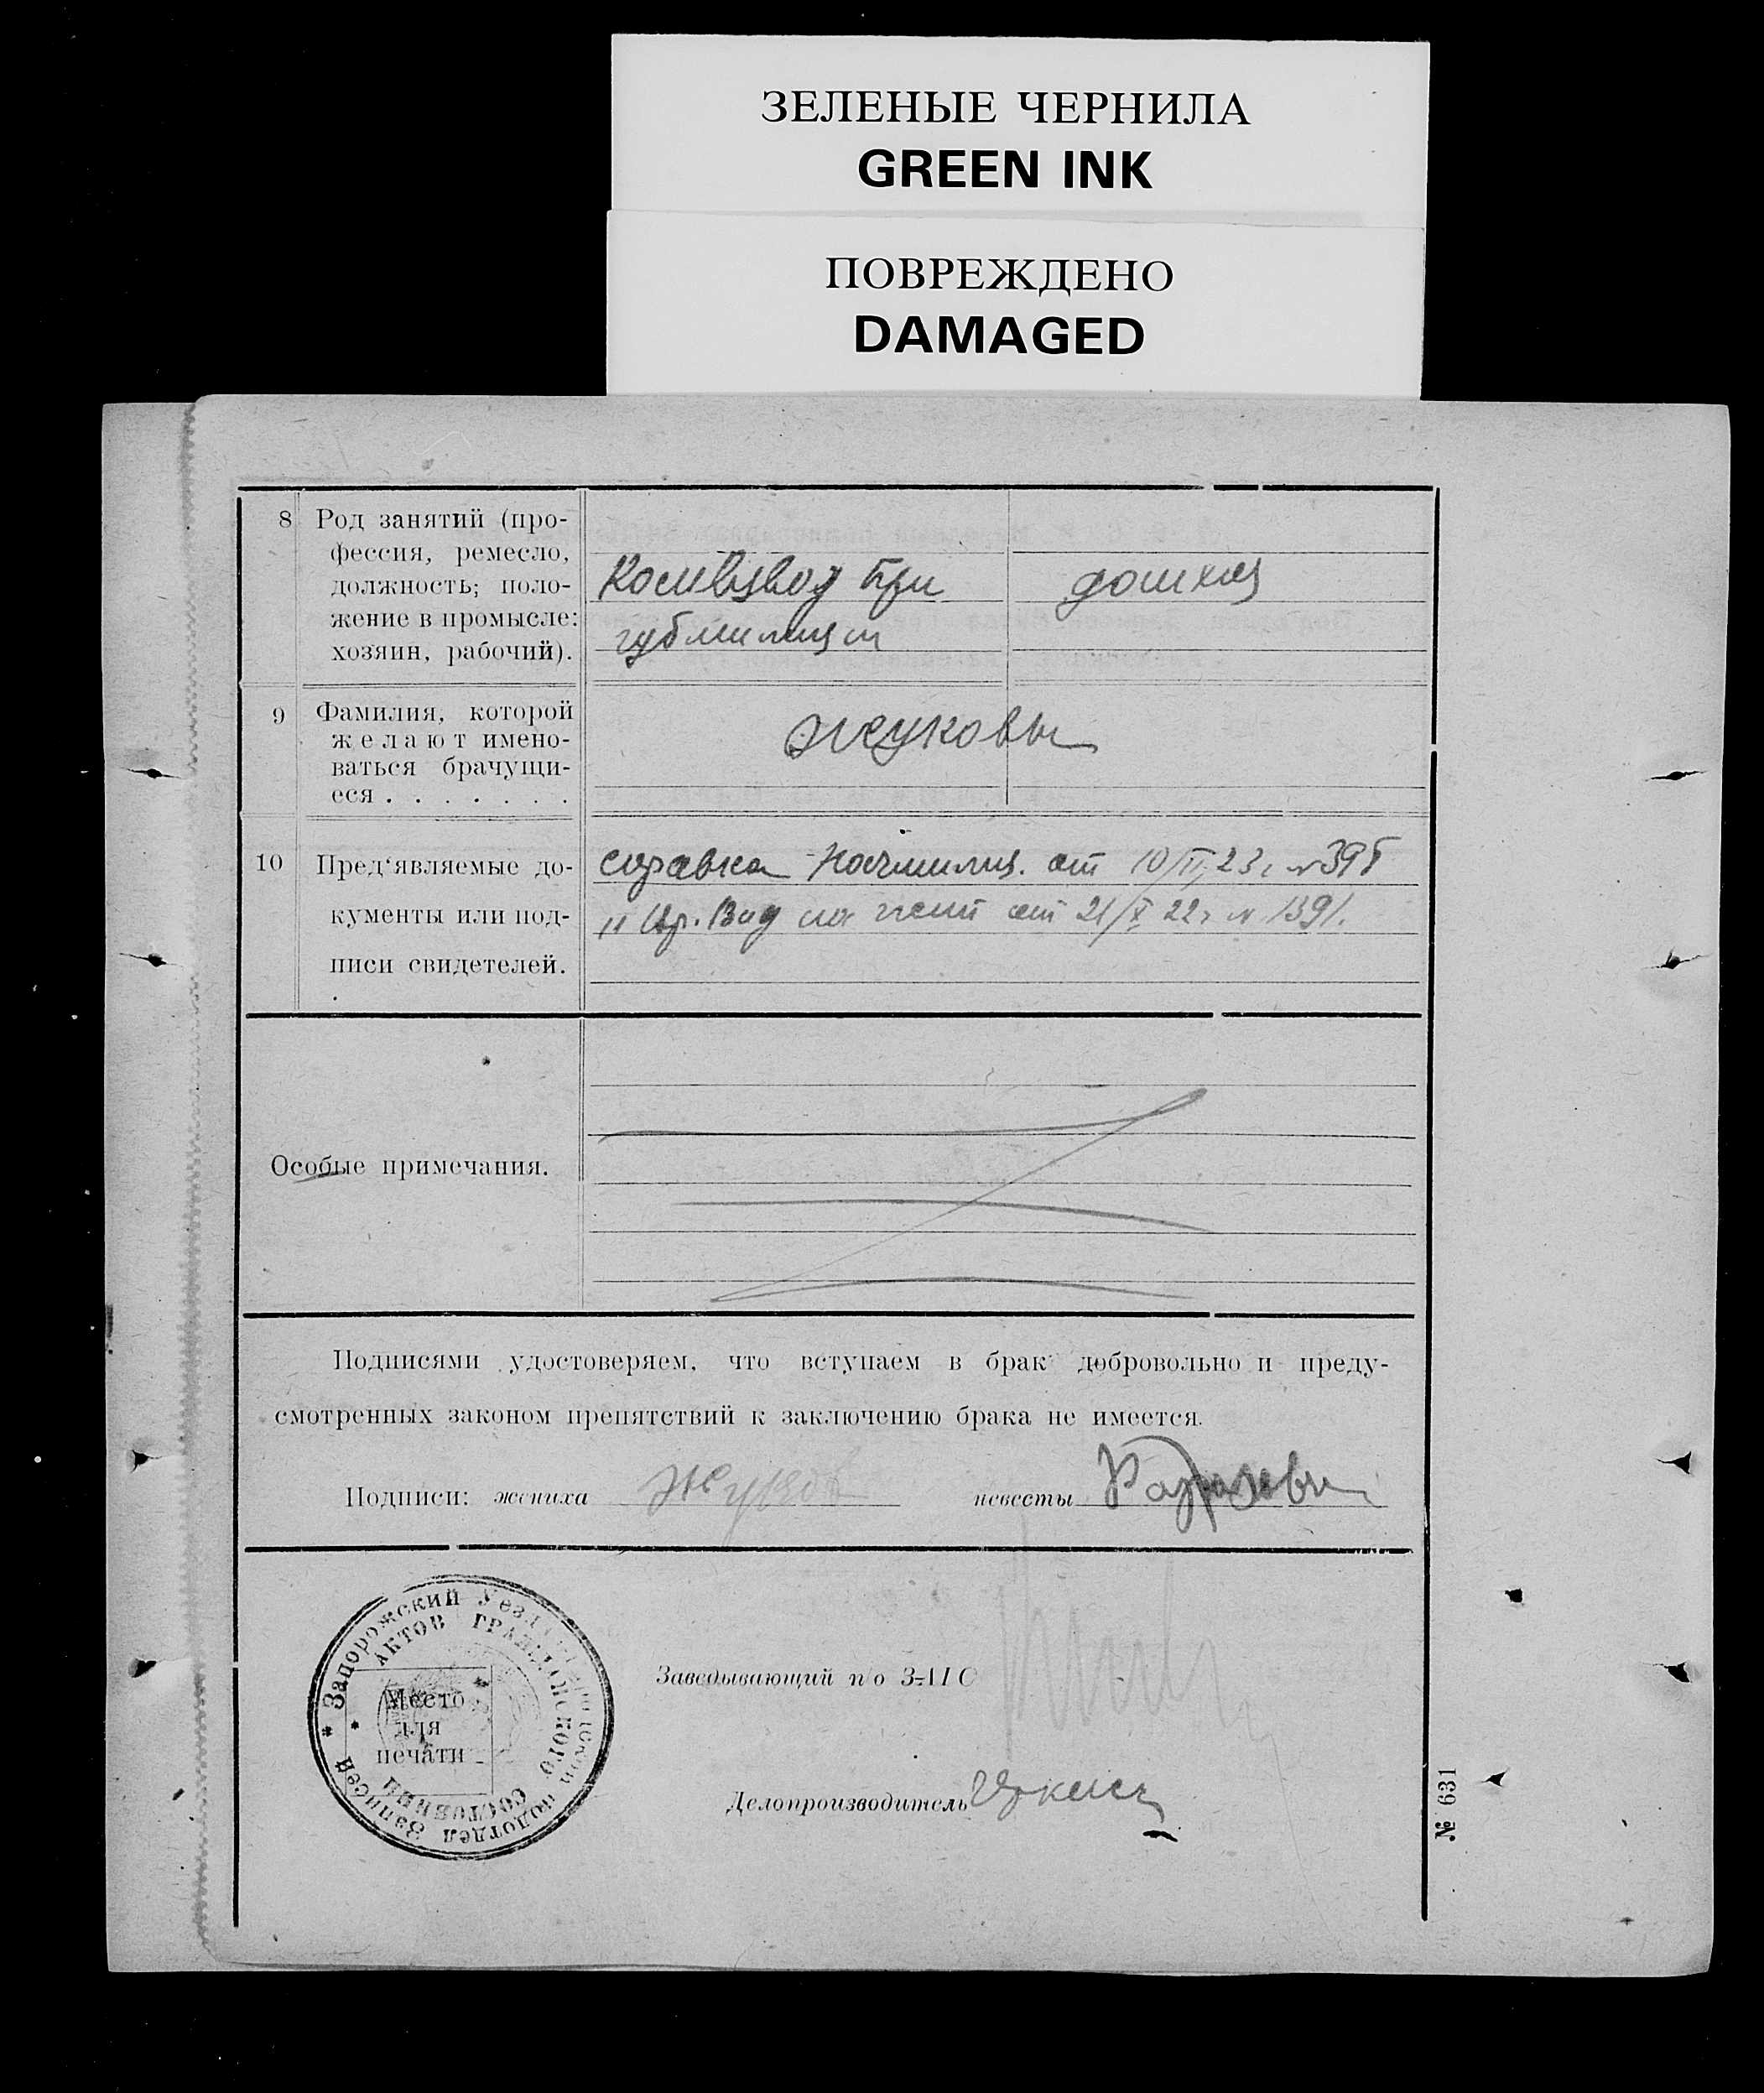 ЗЕЛЕНЫЕ ЧЕРНИЛА
GREEN INK
ПОВРЕЖДЕНО
DAMAGED
8 Род занятий (про-
фессия, ремесло,
должность; поло-
жение в промысле:
хозяин, рабочий).
Комвзвод при
губмилиции
домхоз
9 Фамилия, которой
желают имено-
ваться брачущи-
еся . . . . . . .
Жуковы
10 Пред'являемые до-
кументы или под-
писи свидетелей.
справка Начмилиц. от 10/II 23 г №
Вид на жит от 21/X 22 г № 1391.
Особые примечания.
Подписями удостоверяем, что вступаем в брак добровольно и преду-
смотренных законом препятствий к заключению брака не имеется.
Подписи: жениха Жуков невесты
Запорожский Уезд подотдел Записей
АКТОВ ГРАЖДАНСКОГО СОСТОЯНИЯ
Место
для
печати
Заведывающий п/о ЗАГС
Делопроизводитель
№ 631